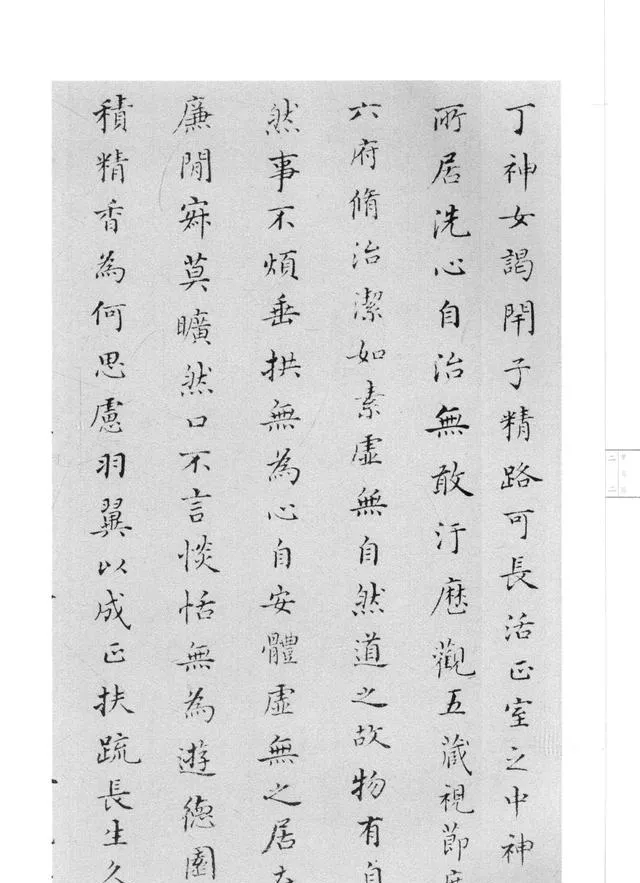 丁神女謁開子精路可長活正室之中神
所居洗心自治無敢汙歷觀五藏視節
六府脩治潔如素虛無自然道之故物有自
然事不煩垂拱無為心自安體虛無之居在
廉閒寂莫曠然口不言惔恬無為遊德園
積精香為何思慮羽翼以成正扶疏長生久